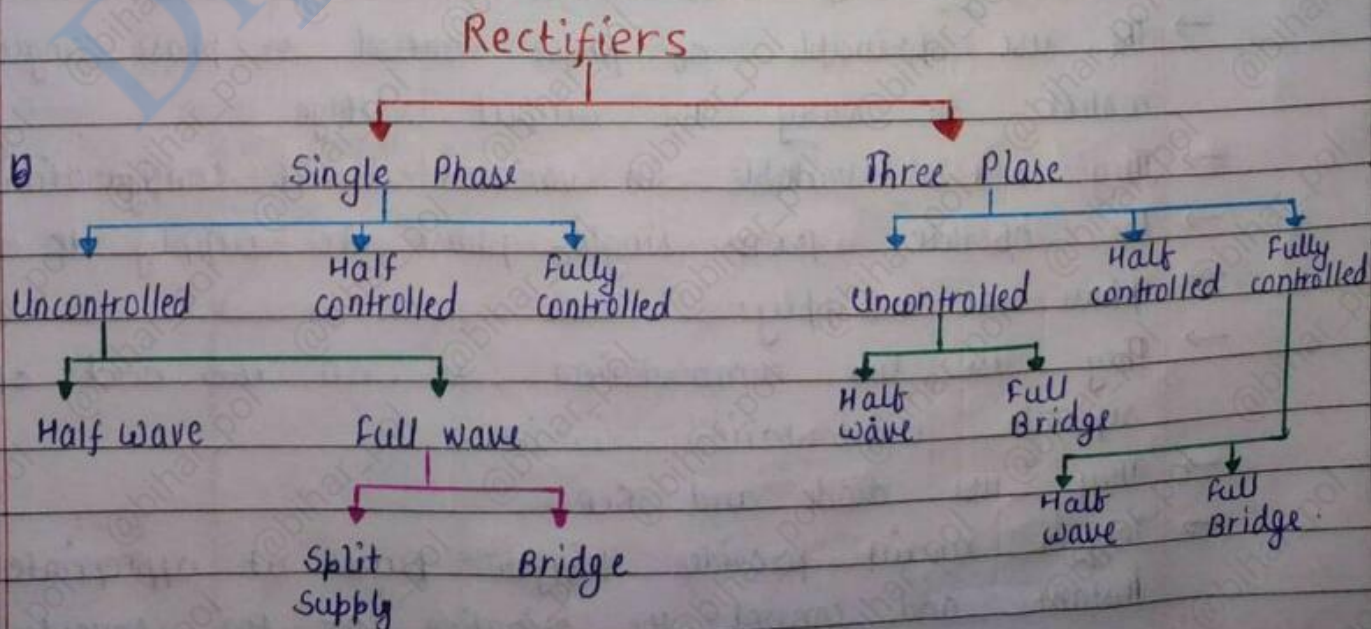 Rectifiers
Single Phase
Three Plase
Uncontrolled
Half
controlled
Fully
controlled
Uncontrolled
Half
controlled
Fully
controlled
Half wave
Full wave
Half
wave
Full
Bridge
Split
Supply
Bridge
Half
wave
Full
Bridge
@bihar_pol